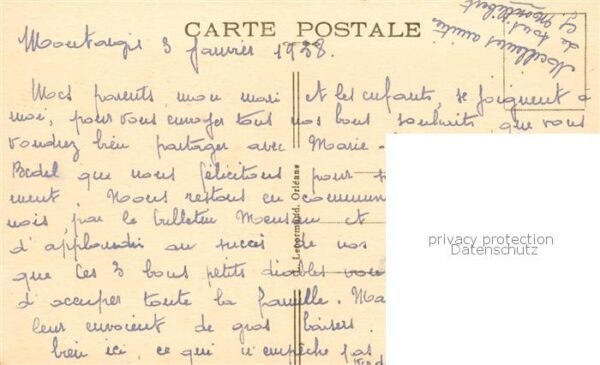 CARTE POSTALE
Montargis 3 Janvier 1938.
Meilleures amitiés
de tous
Mes parents, mon mari et les enfants, se joignent à
moi, pour vous envoyer tous nos bons souhaits, que vous
voudrez bien partager avec Marie-
Bedel que nous félicitons pour s
ment. Nous restons en commun
mois, par le bulletin Mensuel et
d'applaudir au succès de nos
que ces 3 bons petits diables vou
d'occuper toute la famille. Ma
leur envoient de gros baisers.
bien ici, ce qui n'empêche pas
Lecormand, Orléans
privacy protection
Datenschutz